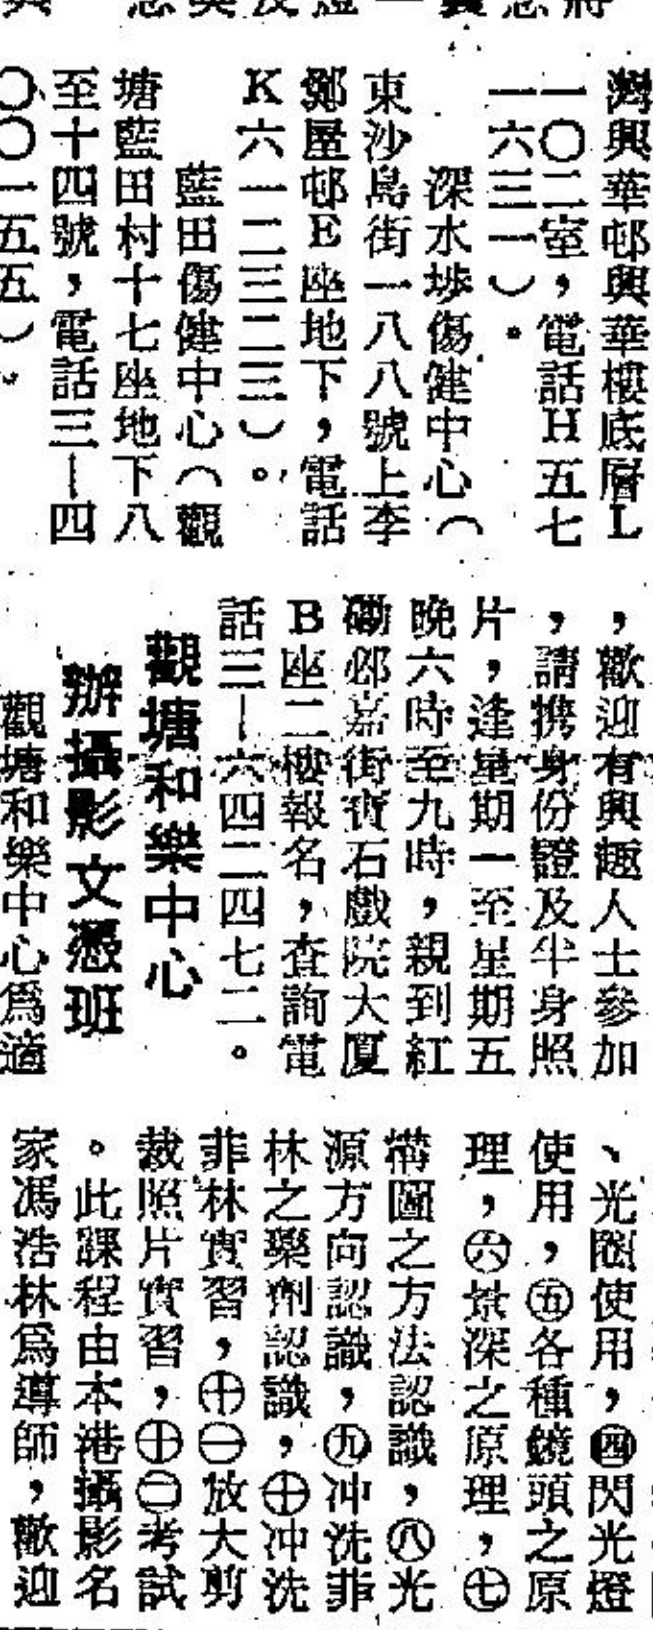 灣興華邨興華樓底層L
一〇二室，電話H五七
一六三一）。
深水埗傷健中心（
東沙島街一八八號上李
鄭屋邨E座地下，電話
K六一二三二三）。
藍田傷健中心（觀
塘藍田村十七座地下八
至十四號，電話三—四
〇〇一五五）。
，歡迎有興趣人士參加
，請携身份證及半身照
片，逢星期一至星期五
晚六時至九時，親到紅
磡邨嘉街寶石戲院大厦
B座二樓報名，查詢電
話三—六四二四七二。
觀塘和樂中心
辦攝影文憑班
觀塘和樂中心爲適
、光圈使用，㊃閃光燈
使用，㊄各種鏡頭之原
理，㊅景深之原理，㊆
構圖之方法認識，㊇光
源方向認識，㊈冲洗菲
林之藥劑認識，㊉冲洗
菲林實習，㊉㊀放大剪
裁照片實習，㊉㊁考試
。此課程由本港攝影名
家馮浩林爲導師，歡迎